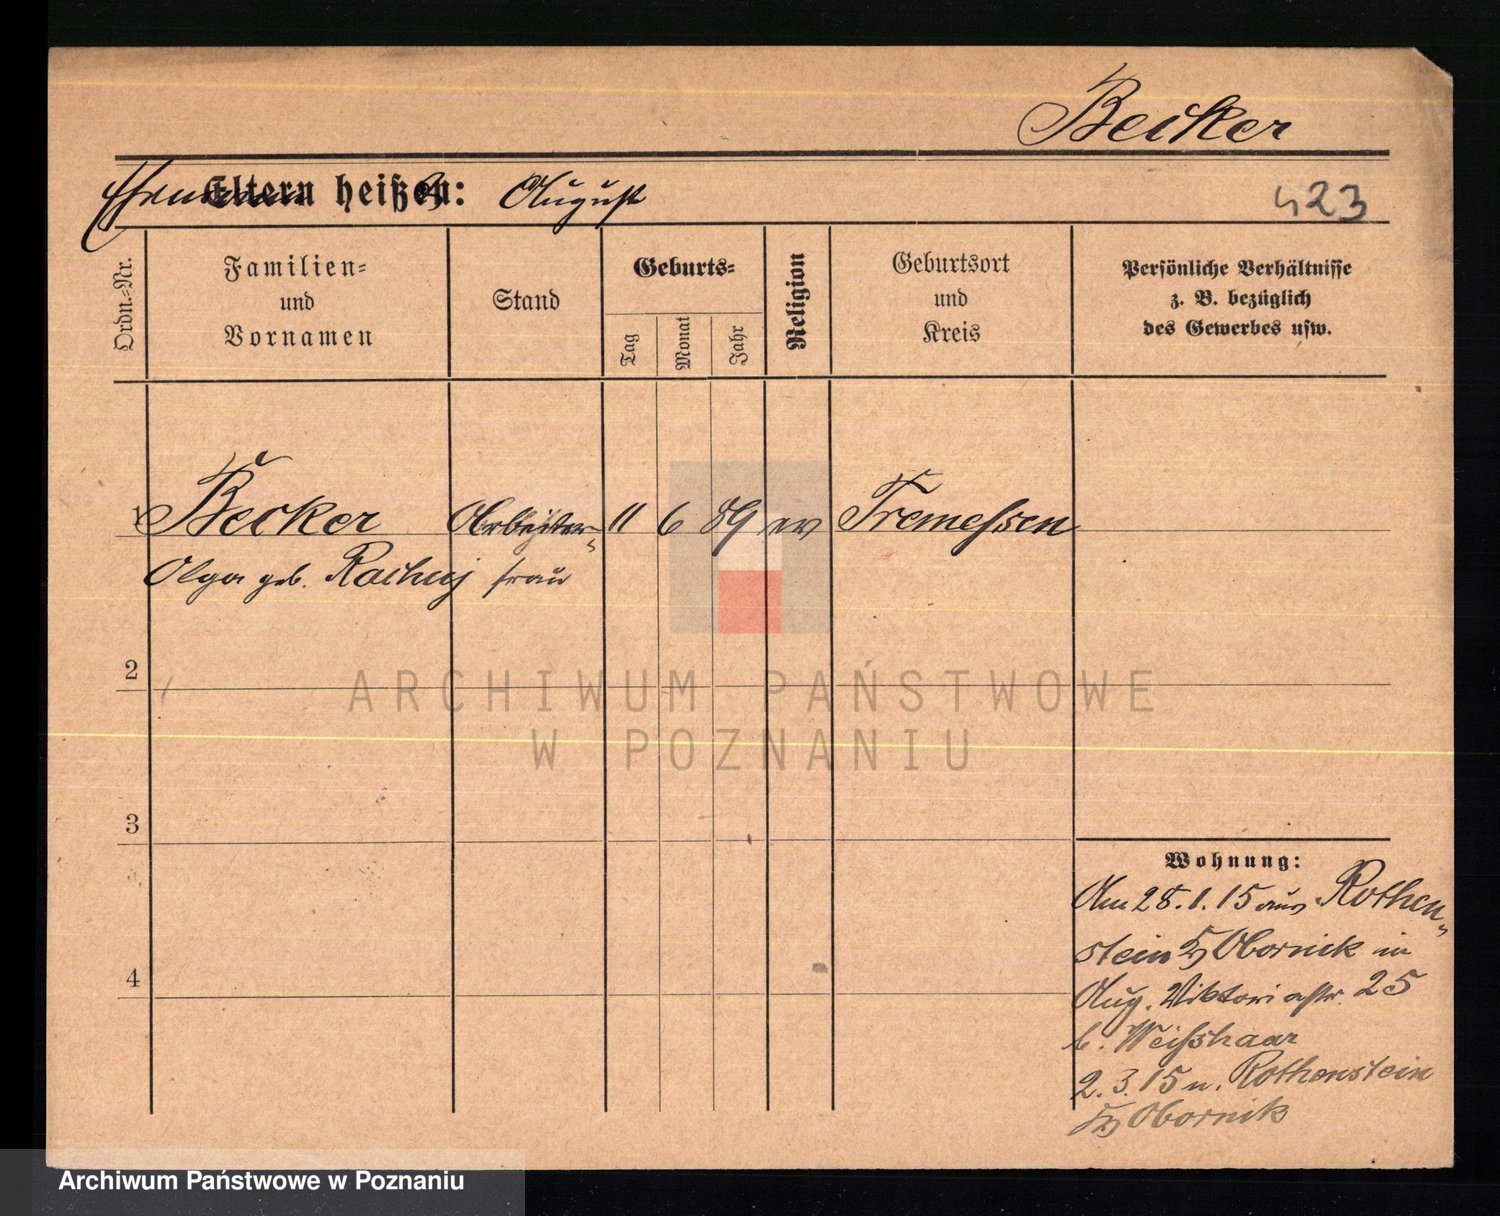 Becker
Ehemann Eltern heißen: August
423
Ordn.-Nr.
Familien-
und
Vornamen
Stand
Geburts-
Tag
Monat
Jahr
Religion
Geburtsort
und
Kreis
Persönliche Verhältnisse
z. B. bezüglich
des Gewerbes usw.
1 Becker Arbeiter- 11 6 89 ev Tremessen
Olga geb. frau
2
3
4
Wohnung:
Am 28.1.15 aus Rothen-
stein Obornik in
Aug. Viktoriastr. 25
b. Weißhaar
2.3.15 n. Rothenstein
Obornik
ARCHIWUM PAŃSTWOWE
W POZNANIU
Archiwum Państwowe w Poznaniu